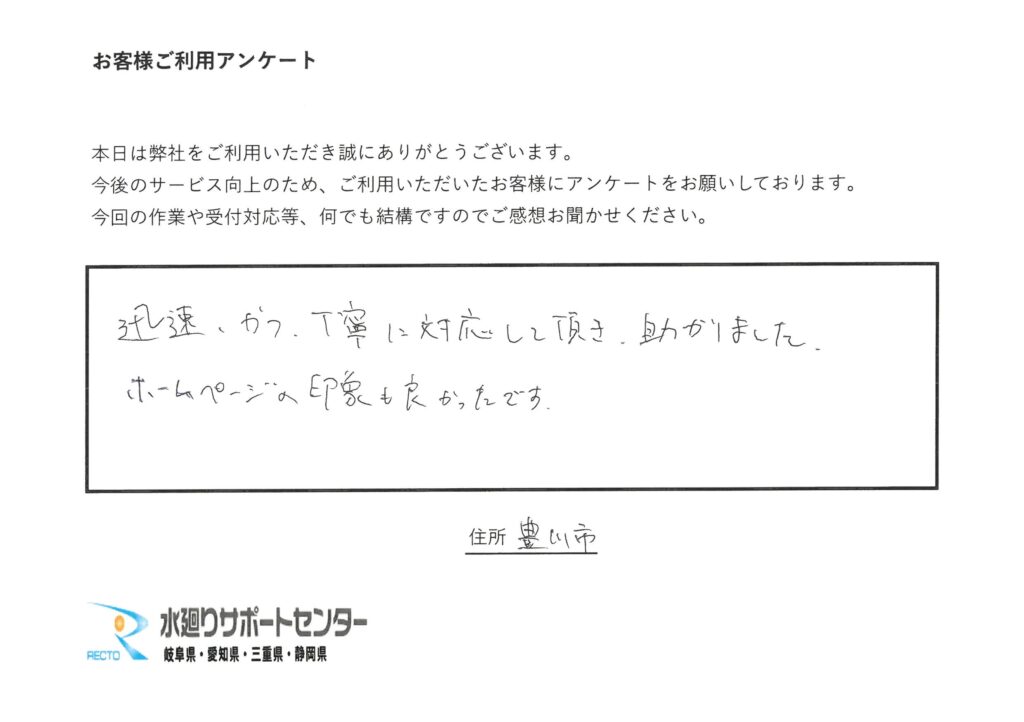 お客様ご利用アンケート
本日は弊社をご利用いただき誠にありがとうございます。
今後のサービス向上のため、ご利用いただいたお客様にアンケートをお願いしております。
今回の作業や受付対応等、何でも結構ですのでご感想お聞かせください。
迅速、かつ、丁寧に対応して頂き、助かりました。
ホームページの印象も良かったです。
住所 豊川市
水廻りサポートセンター
RECTO 岐阜県・愛知県・三重県・静岡県